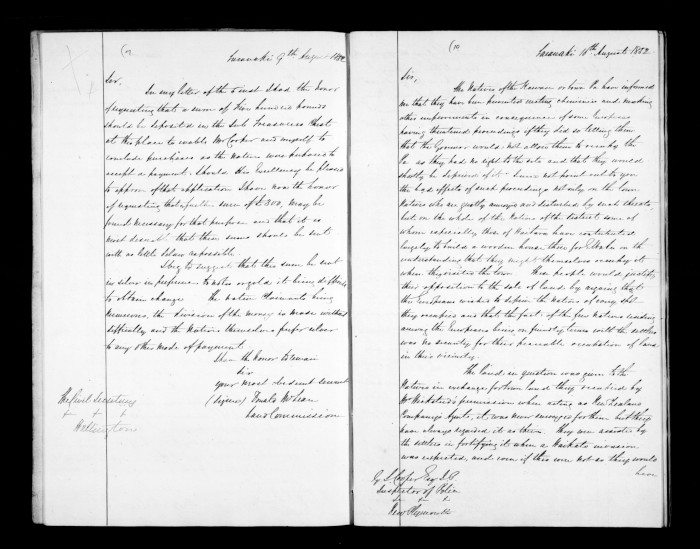 (10
Taranaki 9th August 1852
Sir,
In my letter of the inst I had the honor
of requesting that a sum of Five hundred pounds
should be deposited in the Sub Treasurers Chest
at this place to enable Mr Cooper and myself to
conclude purchases as the natives were prepared to
accept a payment. Should His Excellency be pleased
to approve of that application I have now the honor
of requesting that a further sum of £300, may be
found necessary for that purpose and that it is
most desirable that these sums should be sent
with as little delay as possible
I beg to suggest that this sum be sent
in silver in preference to notes or gold it being difficult
to obtain change The native Claimants being
numerous, the division of the money is made without
difficulty and the Natives themselves prefer silver
to any other mode of payment.
I have the honor to remain
Sir
your most obedient servant
(Signed) Donald McLean
Land Commissioner
The Civil Secretary
+ + +
Wellington
(11
Taranaki 16th August 1852
Sir,
The Natives of the Kawau or town Pa have informed
me that they have been prevented erecting chimneys and making
other improvements in consequence of some Europeans
having threatened proceedings if they did so telling them
that the Governor would not allow them to occupy the
Pa as they had no right to the site and that they would
shortly be deprived of it. I need not point out to you
the bad effects of such proceedings not only on the town
Natives who are greatly annoyed and disturbed by such threats,
but on the whole of the Natives of the district some of
whom especially those of Waitara have contributed
largely to build a wooden house there for E Waka on the
understanding that they might themselves occupy it
when they visited the town These people would justify
their opposition to the sale of land by arguing that
the Europeans wished to deprive the natives of every spot
they occupied and that the fact of the few Natives residing
among the Europeans being on friendly terms with the settlers
was no security for their peaceable occupation of land
in their vicinity.
The land in question was given to the
Natives in exchange for town land they occupied by
Mr Wicksteed's permission when acting as New Zealand
Company's Agent, it was never surveyed for them but they
have always regarded it as theirs. They were assisted by
the settlers in fortifying it when a Waikato invasion
was expected, and even if this were not so they would
have
G. S. Cooper Esq J.P.
Inspector of Police
+ + +
New Plymouth